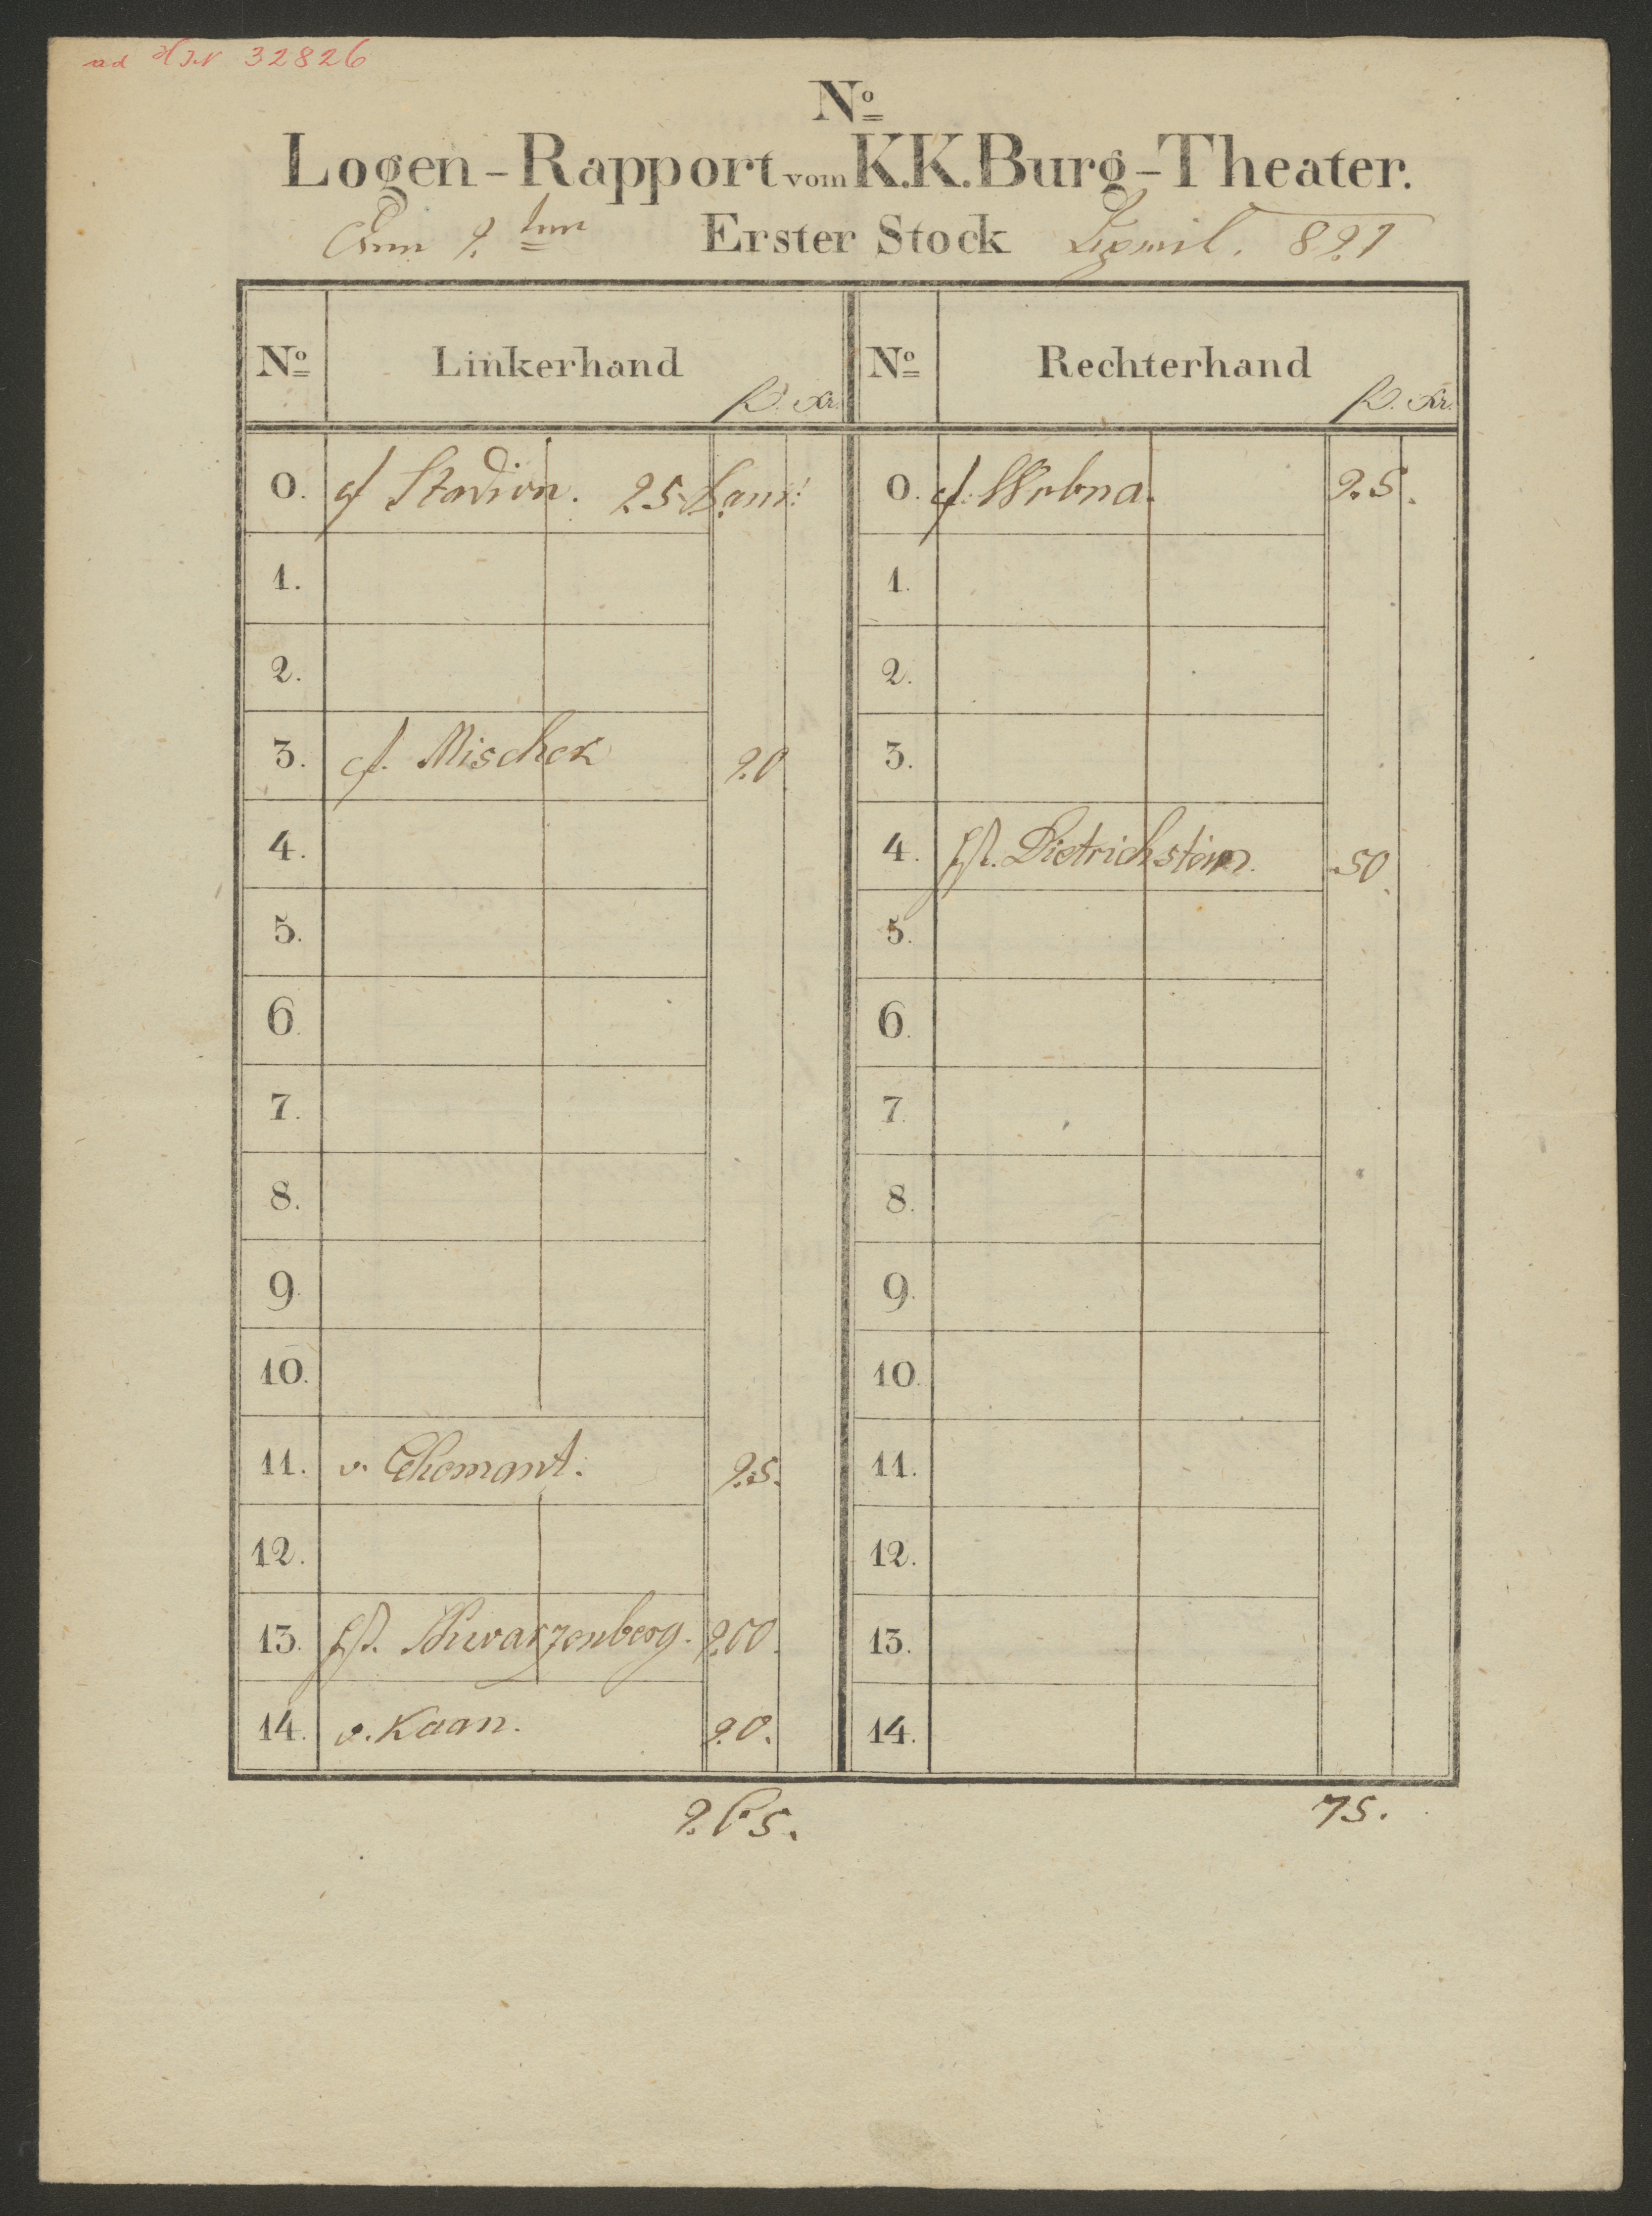 ad HJN 32826
Nº
Logen-Rapport vom K.K. Burg-Theater.
Am 2. ten Erster Stock April. 821
Nº Linkerhand fl. Xr. Nº Rechterhand fl. Xr.
0. gf Stadion. 25 0. gf. Wrbna. 25.
1. 1.
2. 2.
3. gf. Mischek 20 3.
4. 4. fst. Dietrichstein. 50.
5. 5.
6. 6.
7. 7.
8. 8.
9. 9.
10. 10.
11. v. 25. 11.
12. 12.
13. fst. Schwarzenberg. 200. 13.
14. v. Kaan. 20. 14.
265. 75.